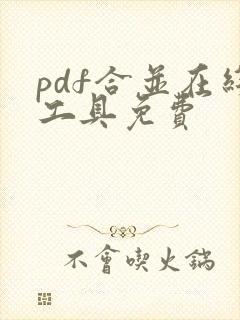 pdf合並在
工具免費
不會喫火鍋